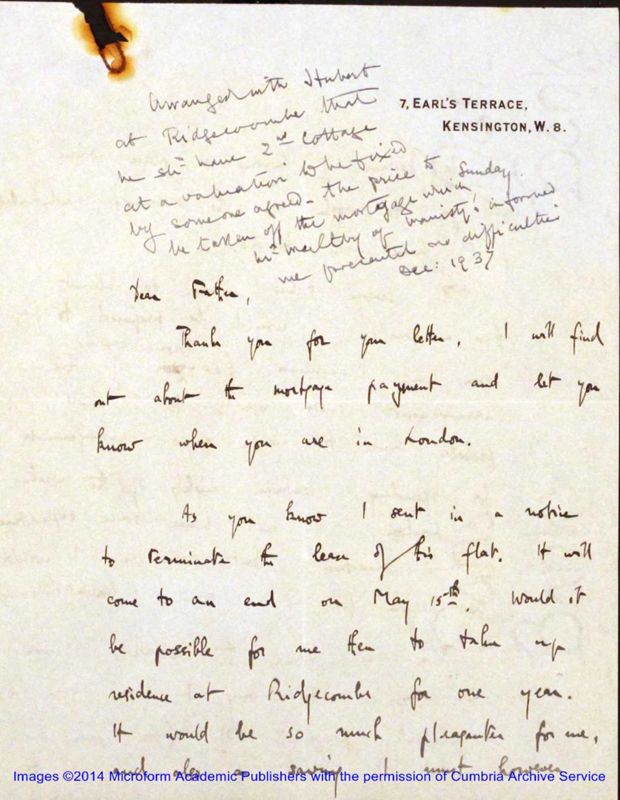 7, EARL'S TERRACE,
KENSINGTON, W. 8.
Arranged with Hubert
at Ridgecoombe that
he shd. have 2nd Cottage
at a valuation to be fixed
by someone agreed - the price to
be taken off the mortgage which Sunday.
mr. of informed
me presented no difficulties
Dec: 1937
Dear Father,
Thank you for your letter. I will find
out about the mortgage payment and let you
know when you are in London.
As you know I sent in a notice
to terminate the lease of this flat. It will
come to an end on May 15th. Would it
be possible for me then to take up
residence at Ridgecombe for one year.
It would be so much pleasanter for me,
and also a saving. I must however
Images ©2014 Microform Academic Publishers with the permission of Cumbria Archive Service